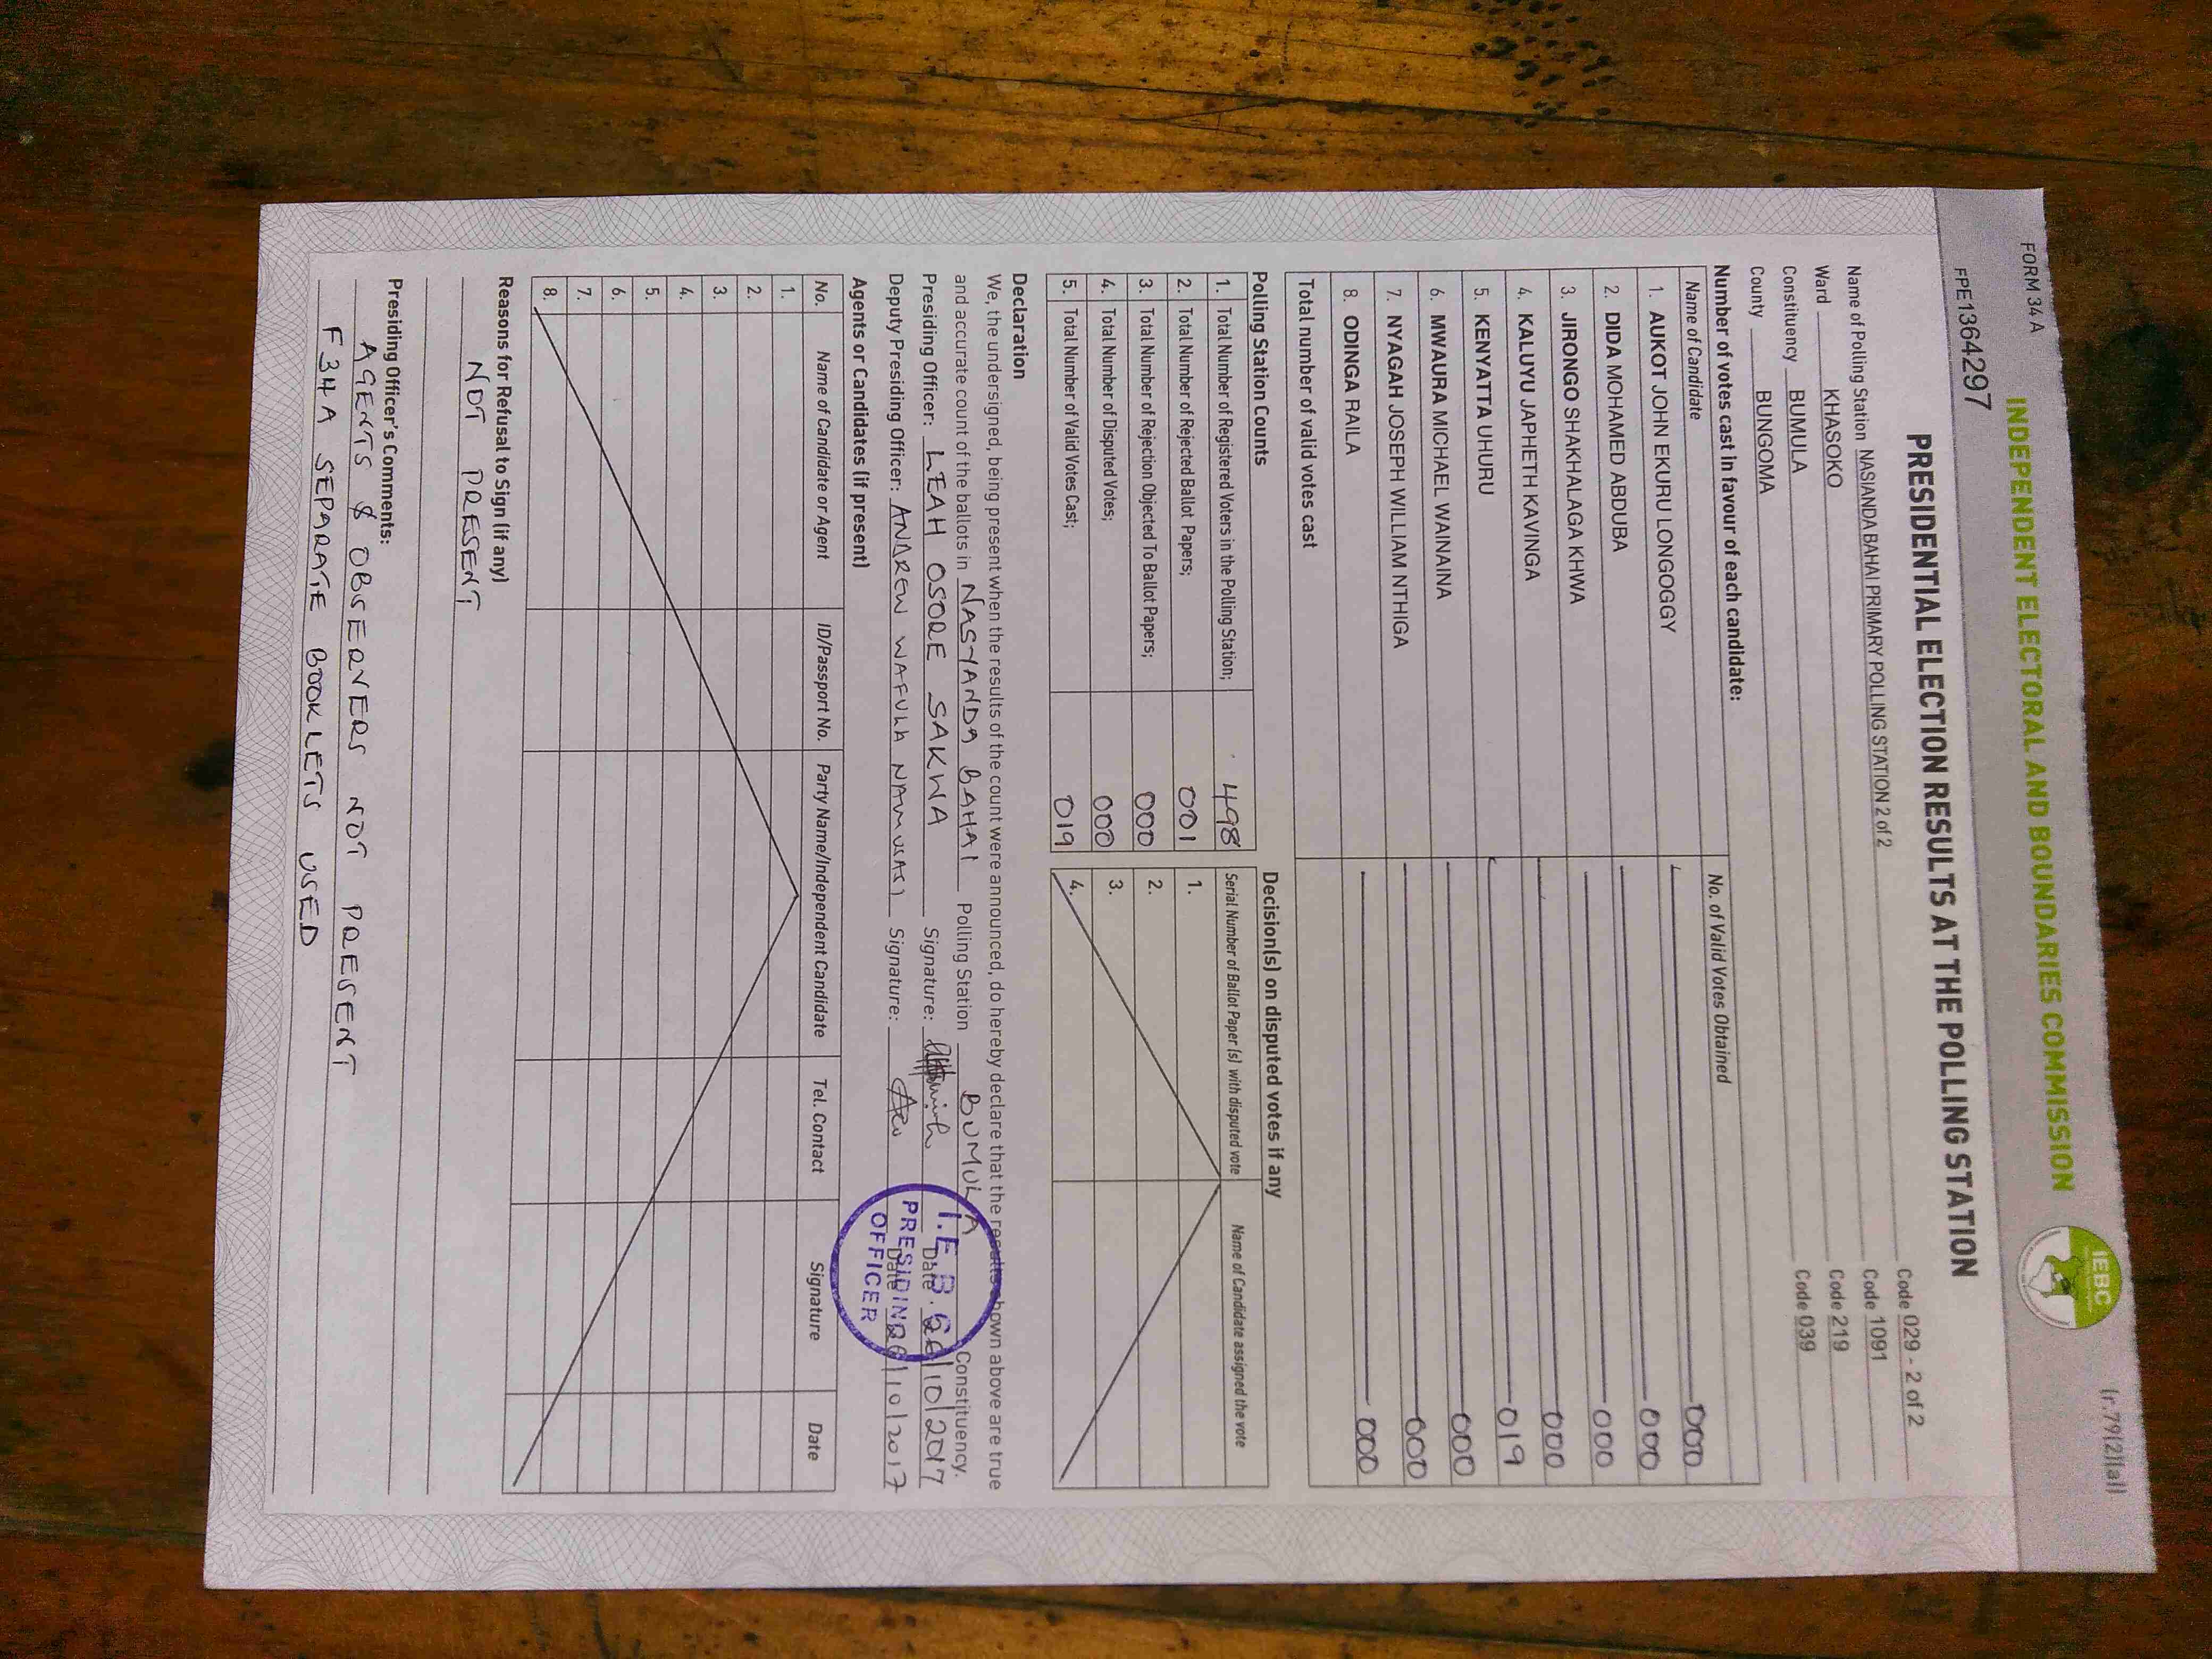 FORM 34 A
(r.79(2)(a))
INDEPENDENT ELECTORAL AND BOUNDARIES COMMISSION
IEBC
FPE1364297
PRESIDENTIAL ELECTION RESULTS AT THE POLLING STATION
Name of Polling Station NASIANDA BAHAI PRIMARY POLLING STATION 2 of 2 Code 029 - 2 of 2
Ward KHASOKO Code 1091
Constituency BUMULA Code 219
County BUNGOMA Code 039
Number of votes cast in favour of each candidate:
Name of Candidate No. of Valid Votes Obtained
1. AUKOT JOHN EKURU LONGOGGY 000
2. DIDA MOHAMED ABDUBA 000
3. JIRONGO SHAKHALAGA KHWA 000
4. KALUYU JAPHETH KAVINGA 000
5. KENYATTA UHURU 019
6. MWAURA MICHAEL WAINAINA 000
7. NYAGAH JOSEPH WILLIAM NTHIGA 000
8. ODINGA RAILA 000
Total number of valid votes cast
Polling Station Counts
1. Total Number of Registered Voters in the Polling Station; 498
2. Total Number of Rejected Ballot Papers; 001
3. Total Number of Rejection Objected To Ballot Papers; 000
4. Total Number of Disputed Votes; 000
5. Total Number of Valid Votes Cast; 019
Decision(s) on disputed votes if any
Serial Number of Ballot Paper (s) with disputed vote Name of Candidate assigned the vote
1.
2.
3.
4.
Declaration
We, the undersigned, being present when the results of the count were announced, do hereby declare that the results shown above are true
and accurate count of the ballots in NASIANDA BAHAI Polling Station BUMULA Constituency.
Presiding Officer: LEAH OSORE SAKWA Signature: Date 26/10/2017
Deputy Presiding Officer: ANDREW WAFULA Signature: Date 26/10/2017
I.E.B.C
PRESIDING
OFFICER
Agents or Candidates (if present)
No. Name of Candidate or Agent ID/Passport No. Party Name/Independent Candidate Tel. Contact Signature Date
1.
2.
3.
4.
5.
6.
7.
8.
Reasons for Refusal to Sign (if any)
NOT PRESENT
Presiding Officer's Comments:
AGENTS & OBSERVERS NOT PRESENT
F34A SEPARATE BOOKLETS USED